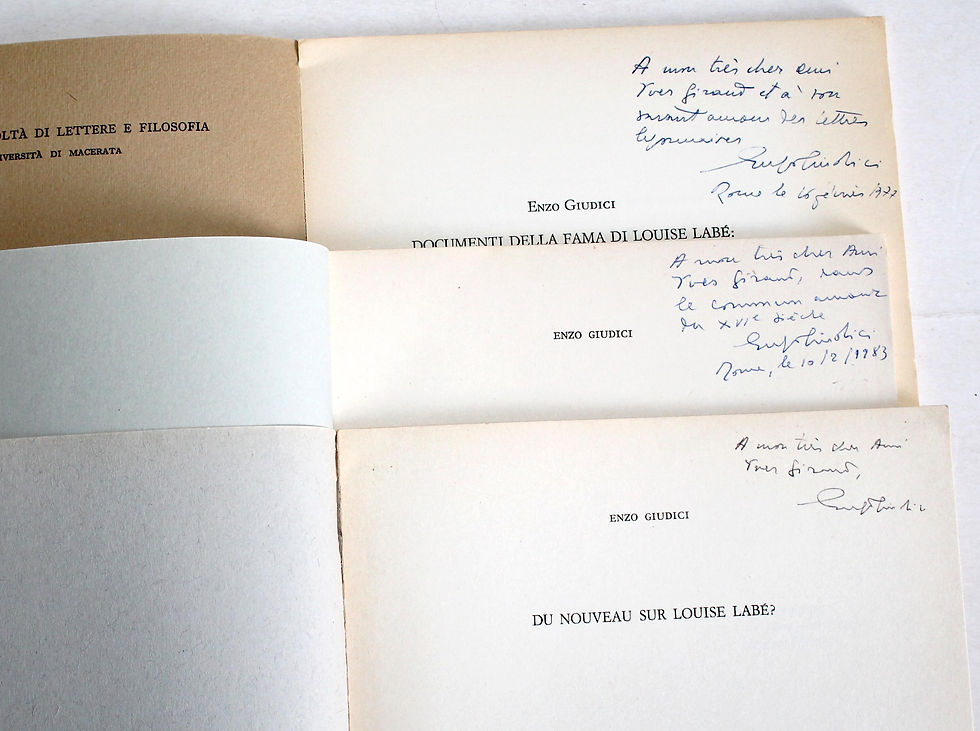 OLTÀ DI LETTERE E FILOSOFIA
IVERSITÀ DI MACERATA
A mon très cher ami
Yves Giraud et à son
savant amour des lettres
lyonnaises
Enzo Giudici
Rome le 16 février 1977
ENZO GIUDICI
DOCUMENTI DELLA FAMA DI LOUISE LABÉ:
A mon très cher Ami
Yves Giraud, dans
le commun amour
du XVIe siècle
Enzo Giudici
Rome, le 10/2/1983
ENZO GIUDICI
A mon très cher Ami
Yves Giraud,
Enzo Giudici
ENZO GIUDICI
DU NOUVEAU SUR LOUISE LABÉ?